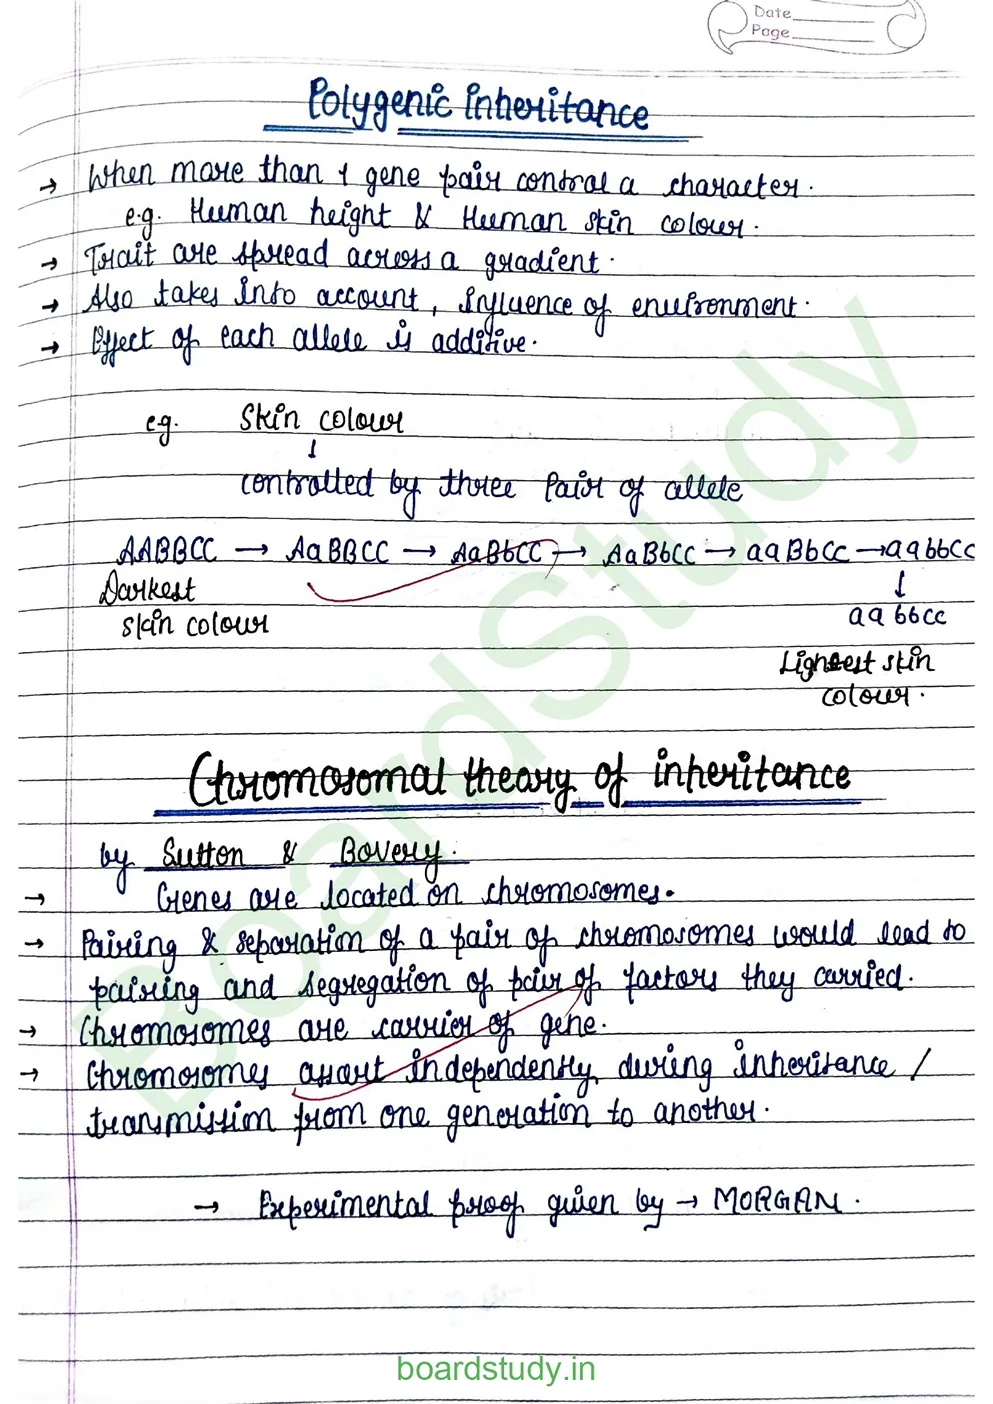 Date
Page
Polygenic inheritance
→ When more than 1 gene pair control a character.
e.g. Human height & Human skin colour.
→ Trait are spread across a gradient.
→ Also takes into account, influence of environment.
→ Effect of each allele is additive.
e.g. Skin colour
↓
controlled by three pair of allele
AABBCC → AaBBCC → AaBbCC → AaBbCc → aaBbCc → aabbCc
Darkest ↓
skin colour aabbcc
Lightest skin
colour.
Chromosomal theory of inheritance
by Sutton & Bovery.
→ Genes are located on chromosomes.
→ Pairing & separation of a pair of chromosomes would lead to
pairing and segregation of pair of factors they carried.
→ Chromosomes are carrier of gene.
→ Chromosomes assart independently during inheritance /
transmission from one generation to another.
→ Experimental proof given by → MORGAN.
BoardStudy
boardstudy.in